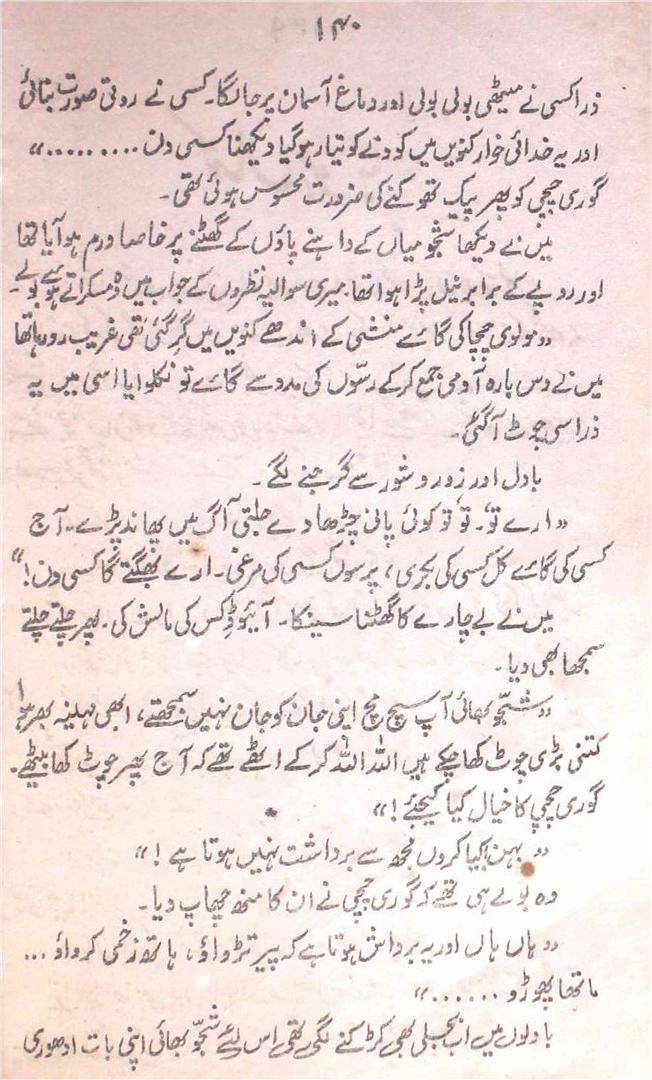 ۱۴۰
ذرا کسی نے میٹھی بولی بولی اور دماغ آسمان پر جا لگا۔ کسی نے روتی صورت بتائی
اور یہ خدائی خوار کنویں میں کودنے کو تیار ہو گیا دیکھنا کسی دن ........."
گوری چچی کو پھر پیک تھوکنے کی ضرورت محسوس ہوئی تھی۔
میں نے دیکھا شجّو میاں کے داہنے پاؤں کے گھٹنے پر خاصا ورم ہو آیا تھا
اور روپے کے برابر نیل پڑا ہوا تھا۔ میری سوالیہ نظروں کے جواب میں وہ مسکراتے ہوئے بولے۔
"مولوی چچا کی گائے منشی کے اندھے کنویں میں گر گئی تھی غریب رو رہا تھا
میں نے دس بارہ آدمی جمع کر کے رسّوں کی مدد سے گائے تو نکلوایا اسی میں یہ
ذرا سی چوٹ آ گئی۔
بادل اور زور و شور سے گرجنے لگے۔
"ارے تو۔ تو تو کوئی پانی چڑھا دے جلتی آگ میں پھاند پڑے۔ آج
کسی کی گائے کل کسی کی بکری، پرسوں کسی کی مرغی۔ ارے بھگتے گا کسی دن!"
میں نے بے چارے کا گھٹنا سینکا۔ آیوڈکس کی مالش کی۔ پھر چلتے چلتے
سمجھا بھی دیا۔
"شجّو بھائی آپ سچ مچ اپنی جان کو جان نہیں سمجھتے، ابھی مہینہ بھر ہوا
کتنی بڑی چوٹ کھا چکے ہیں اللہ اللہ کر کے اٹھے تھے کہ آج پھر چوٹ کھا بیٹھے۔
گوری چچی کا خیال کیا کیجئے!"
"بہن! کیا کروں مجھ سے برداشت نہیں ہوتا ہے!"
وہ بولے ہی تھے کہ گوری چچی نے ان کا منھ چھاپ دیا۔
"ہاں ہاں اور یہ برداش ہوتا ہے کہ پیر تڑواؤ، ہاتھ زخمی کرواؤ ...
ماتھا پھوڑو ......"
بادلوں میں اب بجلی بھی کڑکنے لگی تھی اس لئے شجّو بھائی اپنی بات ادھوری